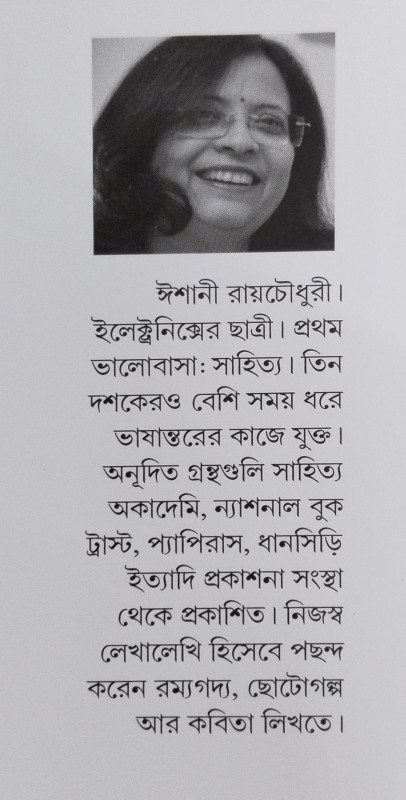 ঈশানী রায়চৌধুরী।
ইলেক্ট্রনিক্সের ছাত্রী। প্রথম
ভালোবাসা: সাহিত্য। তিন
দশকেরও বেশি সময় ধরে
ভাষান্তরের কাজে যুক্ত।
অনূদিত গ্রন্থগুলি সাহিত্য
অকাদেমি, ন্যাশনাল বুক
ট্রাস্ট, প্যাপিরাস, ধানসিড়ি
ইত্যাদি প্রকাশনা সংস্থা
থেকে প্রকাশিত। নিজস্ব
লেখালেখি হিসেবে পছন্দ
করেন রম্যগদ্য, ছোটোগল্প
আর কবিতা লিখতে।